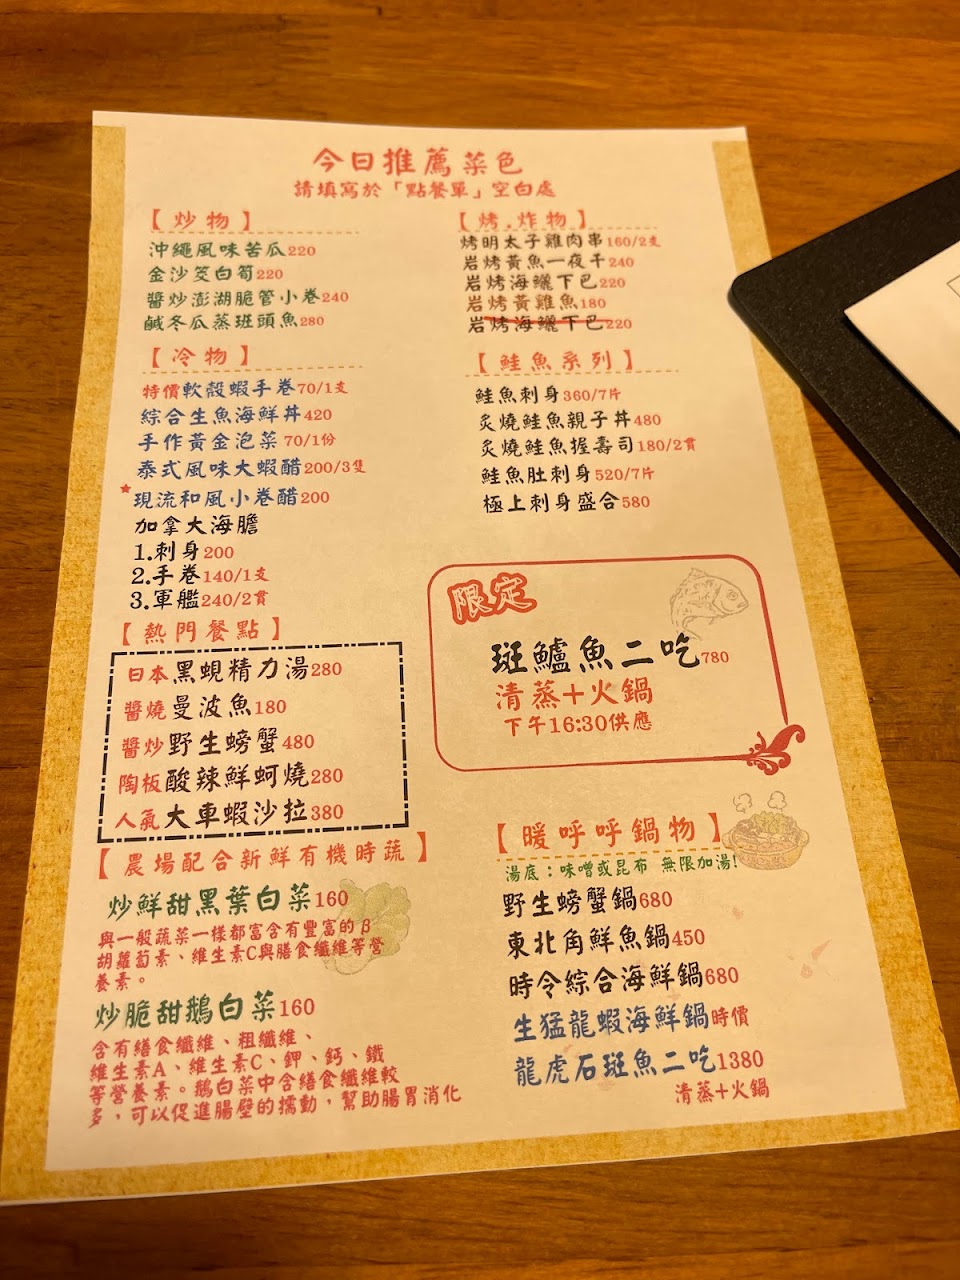 今日推薦菜色
請填寫於「點餐單」空白處
【炒物】
沖繩風味苦瓜220
金沙筊白筍220
醬炒澎湖脆管小卷240
鹹冬瓜蒸班頭魚280
【冷物】
特價軟殼蝦手卷70/1支
綜合生魚海鮮丼420
手作黃金泡菜70/1份
泰式風味大蝦醋200/3隻
★現流和風小卷醋200
加拿大海膽
1.刺身200
2.手卷140/1支
3.軍艦240/2貫
【熱門餐點】
日本黑蜆精力湯280
醬燒曼波魚180
醬炒野生螃蟹480
陶板酸辣鮮蚵燒280
人氣大車蝦沙拉380
【農場配合新鮮有機時蔬】
炒鮮甜黑葉白菜160
與一般蔬菜一樣都富含有豐富的β
胡蘿蔔素、維生素C與膳食纖維等營
養素。
炒脆甜鵝白菜160
含有繕食纖維、粗纖維、
維生素A、維生素C、鉀、鈣、鐵
等營養素。鵝白菜中含繕食纖維較
多,可以促進腸壁的蠕動,幫助腸胃消化
【烤.炸物】
烤明太子雞肉串160/2支
岩烤黃魚一夜干240
岩烤海鱺下巴220
岩烤黃雞魚180
岩烤海鱺下巴220
【鮭魚系列】
鮭魚刺身360/7片
炙燒鮭魚親子丼480
炙燒鮭魚握壽司180/2貫
鮭魚肚刺身520/7片
極上刺身盛合580
限定
斑鱸魚二吃780
清蒸+火鍋
下午16:30供應
【暖呼呼鍋物】
湯底:味噌或昆布 無限加湯!
野生螃蟹鍋680
東北角鮮魚鍋450
時令綜合海鮮鍋680
生猛龍蝦海鮮鍋時價
龍虎石斑魚二吃1380
清蒸+火鍋